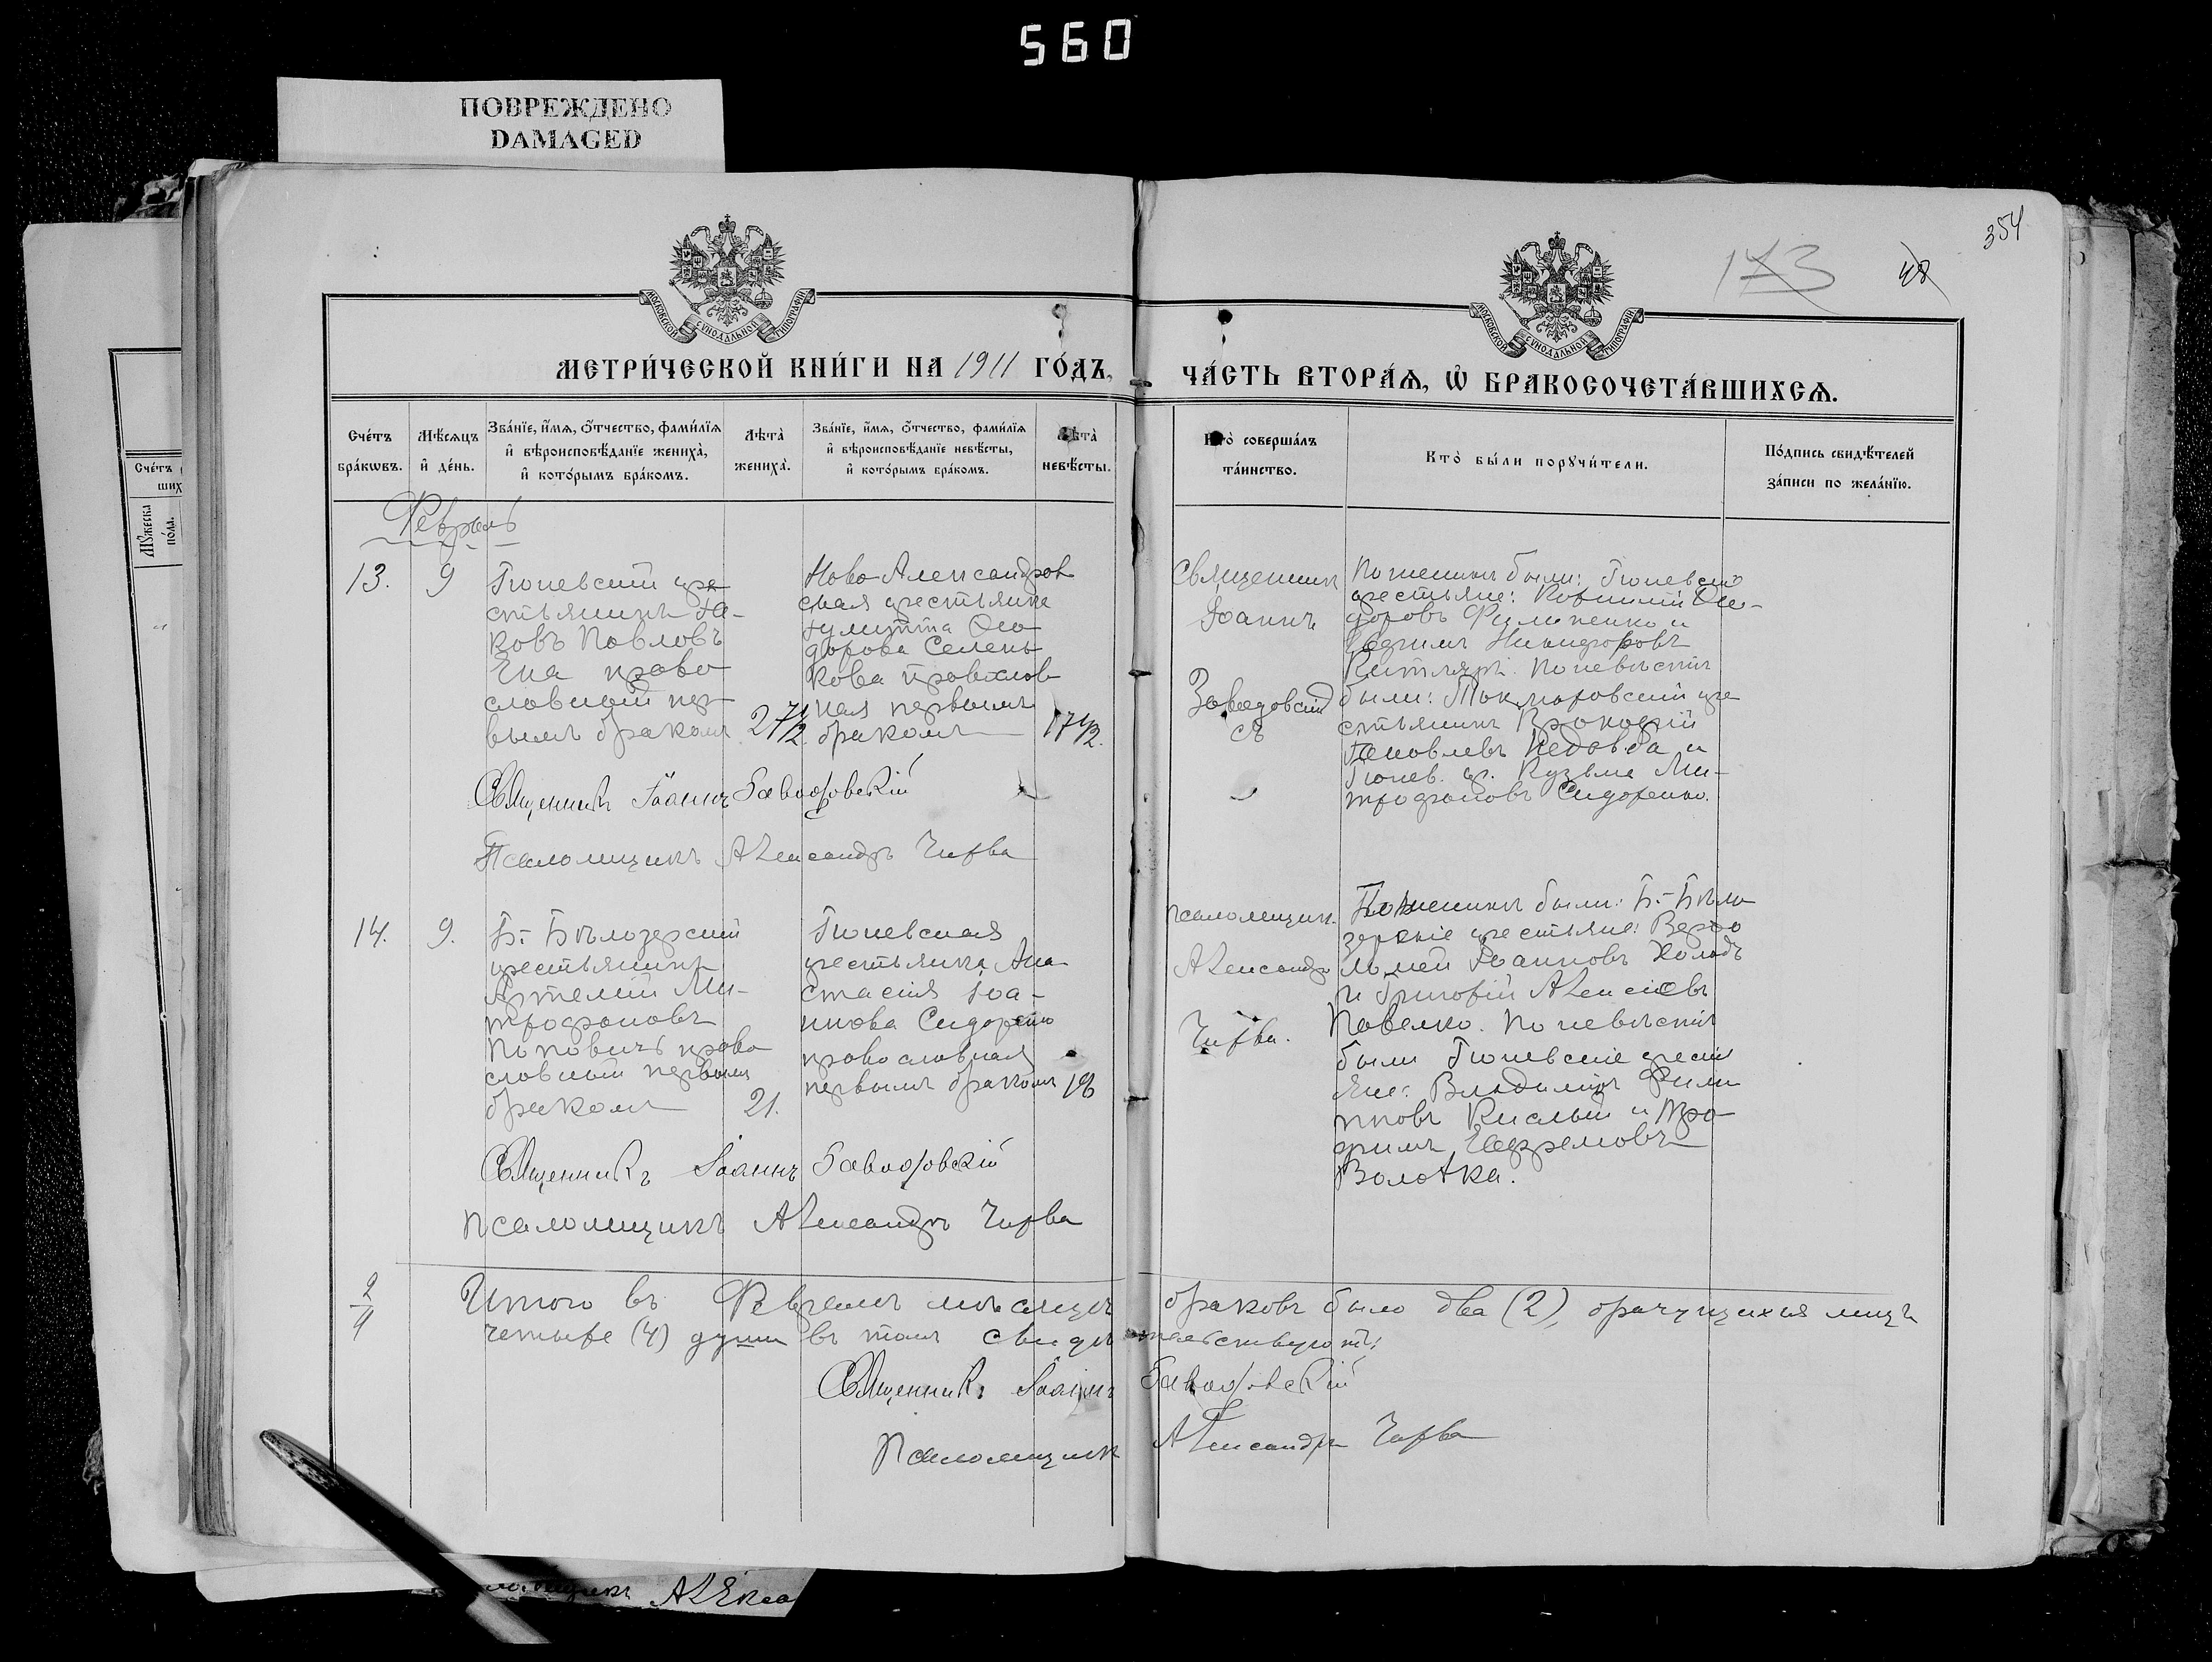 560
ПОВРЕЖДЕНО
DAMAGED
354
173
48
МОСКОВСКОЙ СѴНОДАЛЬНОЙ ТИПОГРАФІИ
МОСКОВСКОЙ СѴНОДАЛЬНОЙ ТИПОГРАФІИ
МЕТРИ́ЧЕСКОЙ КНИ́ГИ НА 1911 ГО́ДЪ,
ЧА́СТЬ ВТОРА́Ѧ, Ѡ БРАКОСОЧЕТА́ВШИХСѦ.
Сче́тъ бра́кѡвъ.
Мѣ́сѧцъ и де́нь.
Зва́нїе, и́мѧ, о́тчество, фами́лїѧ и вѣроисповѣ́данїе жениха̀, и кото́рымъ бра́комъ.
Лѣта̀ жениха̀.
Зва́нїе, и́мѧ, о́тчество, фами́лїѧ и вѣроисповѣ́данїе невѣ́сты, и кото́рымъ бра́комъ.
Лѣта̀ невѣ́сты.
Кто̀ соверша́лъ та́инство.
Кто̀ бы́ли порꙋчи́тели.
По́дпись свидѣ́телей за́писи по жела́нїю.
Сче́тъ
ших
Мꙋ́жеска по́ла.
Февраль
13.
9
Гюневскій кре
стьянинъ Іа-
ковъ Павловъ
Ена право
славный пер
вымъ бракомъ
27 1/2.
Ново Александров
ская крестьянка
Іулитта Ѳео
дорова Селень
кова православ
ная первымъ
бракомъ
17 1/2.
Священникъ
Іоаннъ
Заводовскій
съ
По женихѣ были: Гюневскіе
крестьяне: Ѳео-
доровъ Филипенко и
Евфимъ Никифоровъ
По невѣстѣ
были: Токмаровскій кре
стьянинъ Прокофій
Яковлевъ Недовба и
Гюнев. кр. Кузьма Ми-
трофановъ Сидоренко.
Священникъ Іоаннъ Заводовскій
Псаломщикъ Александръ Чирва
14.
9.
Б.-Бѣлозерскій
крестьянинъ
Артемій Ми-
трофановъ
Поповичъ право
славный первымъ
бракомъ
21.
Гюневская
крестьянка Ана
стасія Іоа-
ннова Сидоренко
православная
первымъ бракомъ
18
псаломщик.
Александръ
Чирва.
По женихѣ были: Б.-Бѣло
зерскіе крестьяне: Варфо
ломей Іоанновъ Холодъ
и Григорій Алексѣевъ
Павелко. По невѣстѣ
были Гюневскіе крест
яне: Владиміръ Фили
пповъ Кислый и Тро-
фимъ Евфремовъ
Волотка.
Священникъ Іоаннъ Заводовскій
Псаломщикъ Александръ Чирва
2
4
Итого въ Февралѣ мѣсяцѣ браковъ было два (2), брачущихся лицъ
четыре (4) души въ томъ свидѣтельствуютъ:
Священникъ Іоаннъ Заводовскій
Псаломщикъ Александръ Чирва